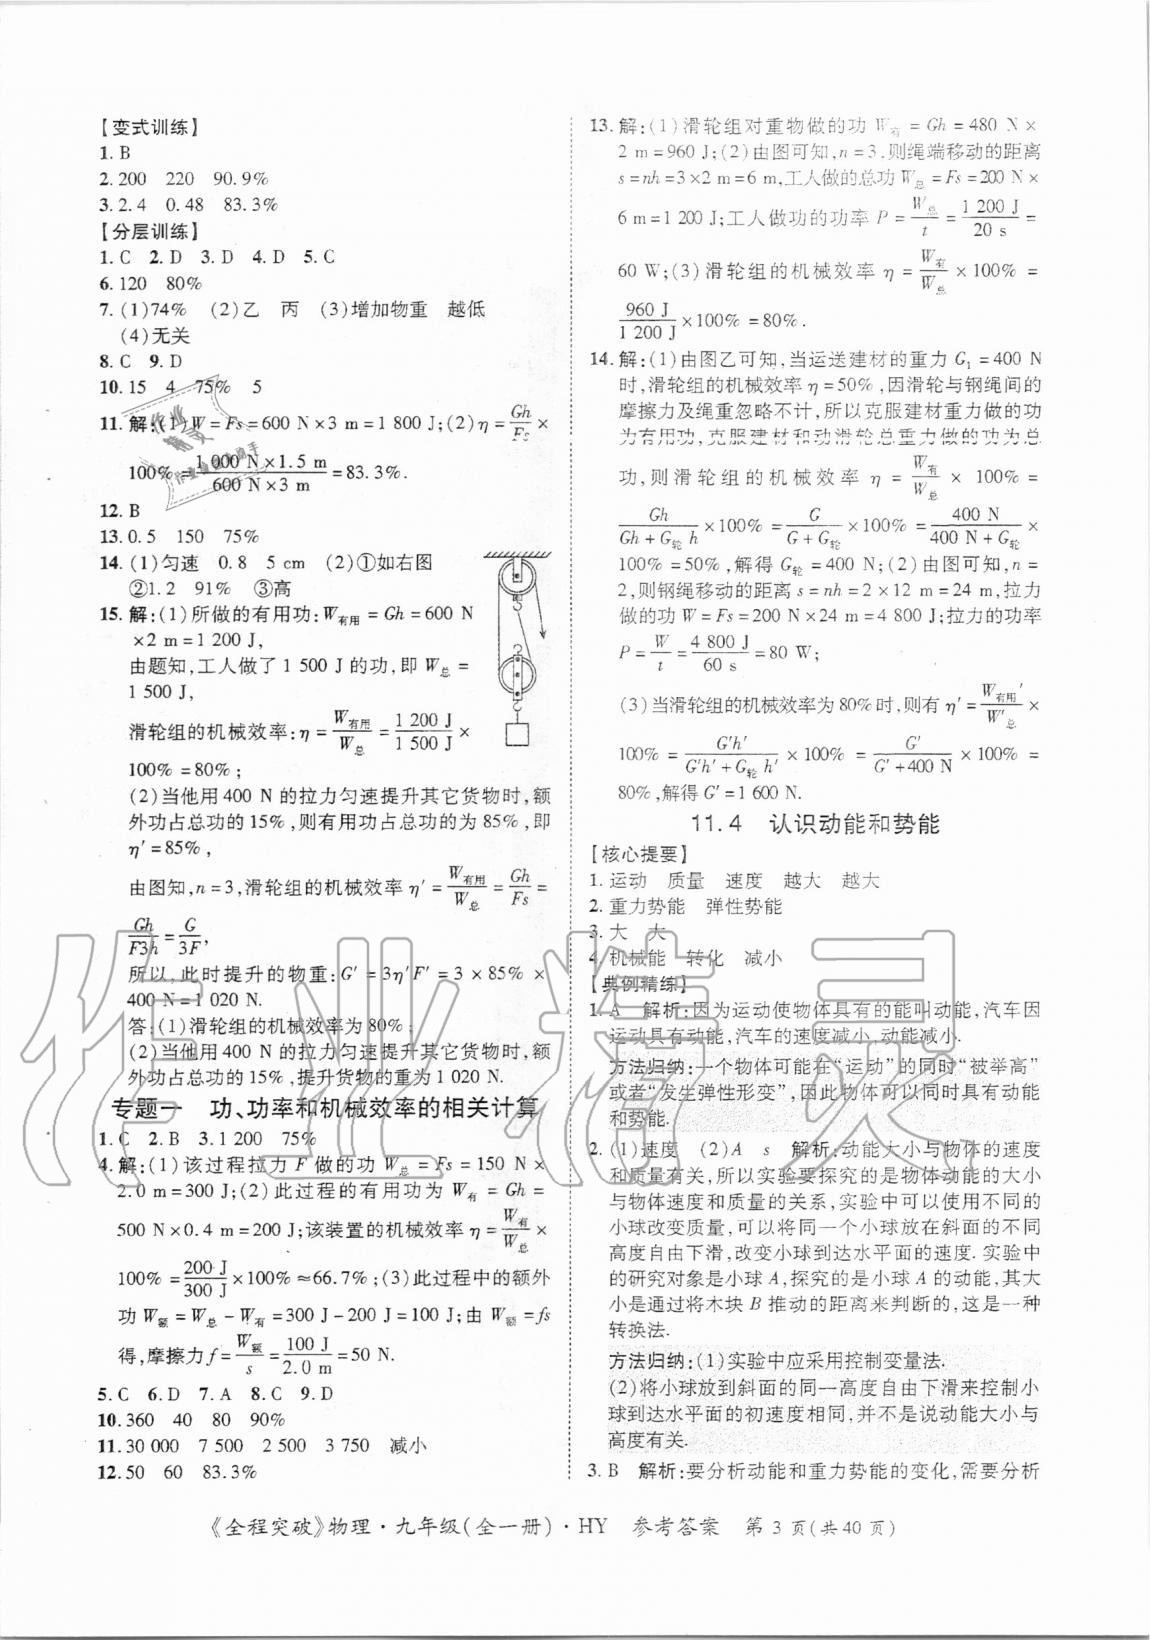 【变式训练】
1. B
2. 200　220　90.9%
3. 2.4　0.48　83.3%
【分层训练】
1. C　2. D　3. D　4. D　5. C
6. 120　80%
7. (1)74%　(2)乙　丙　(3)增加物重　越低
(4)无关
8. C　9. D
10. 15　4　75%　5
11. 解:(1)W=Fs=600 N×3 m=1 800 J;(2)η=Gh/Fs×
100%=1 000 N×1.5 m/600 N×3 m=83.3%.
12. B
13. 0.5　150　75%
14. (1)匀速　0.8　5 cm　(2)①如右图
②1.2　91%　③高
15. 解:(1)所做的有用功:W有用=Gh=600 N
×2 m=1 200 J,
由题知,工人做了 1 500 J 的功,即 W总=
1 500 J,
滑轮组的机械效率:η=W有用/W总=1 200 J/1 500 J×
100%=80%;
(2)当他用 400 N 的拉力匀速提升其它货物时,额
外功占总功的 15%,则有用功占总功的为 85%,即
η′=85%,
由图知,n=3,滑轮组的机械效率 η′=W有用/W总=Gh/Fs=
Gh/F3h=G/3F,
所以,此时提升的物重:G′=3η′F′=3×85%×
400 N=1 020 N.
答:(1)滑轮组的机械效率为 80%;
(2)当他用 400 N 的拉力匀速提升其它货物时,额
外功占总功的 15%,提升货物的重为 1 020 N.
专题一　功、功率和机械效率的相关计算
1. C　2. B　3. 1 200　75%
4. 解:(1)该过程拉力 F 做的功 W总=Fs=150 N×
2.0 m=300 J;(2)此过程的有用功为 W有=Gh=
500 N×0.4 m=200 J;该装置的机械效率 η=W有/W总×
100%=200 J/300 J×100%≈66.7%;(3)此过程中的额外
功 W额=W总-W有=300 J-200 J=100 J;由 W额=fs
得,摩擦力 f=W额/s=100 J/2.0 m=50 N.
5. C　6. D　7. A　8. C　9. D
10. 360　40　80　90%
11. 30 000　7 500　2 500　3 750　减小
12. 50　60　83.3%
13. 解:(1)滑轮组对重物做的功 W有=Gh=480 N×
2 m=960 J;(2)由图可知,n=3.则绳端移动的距离
s=nh=3×2 m=6 m,工人做的总功 W总=Fs=200 N×
6 m=1 200 J;工人做功的功率 P=W总/t=1 200 J/20 s=
60 W;(3)滑轮组的机械效率 η=W有/W总×100%=
960 J/1 200 J×100%=80%.
14. 解:(1)由图乙可知,当运送建材的重力 G1=400 N
时,滑轮组的机械效率 η=50%,因滑轮与钢绳间的
摩擦力及绳重忽略不计,所以克服建材重力做的功
为有用功,克服建材和动滑轮总重力做的功为总
功,则滑轮组的机械效率 η=W有/W总×100%=
Gh/Gh+G轮h×100%=G/G+G轮×100%=400 N/400 N+G轮×
100%=50%,解得 G轮=400 N;(2)由图可知,n=
2,则钢绳移动的距离 s=nh=2×12 m=24 m,拉力
做的功 W=Fs=200 N×24 m=4 800 J;拉力的功率
P=W/t=4 800 J/60 s=80 W;
(3)当滑轮组的机械效率为 80%时,则有 η′=W有用′/W′总×
100%=G′h′/G′h′+G轮h′×100%=G′/G′+400 N×100%=
80%,解得 G′=1 600 N.
11.4　认识动能和势能
【核心提要】
1. 运动　质量　速度　越大　越大
2. 重力势能　弹性势能
3. 大　大
4. 机械能　转化　减小
【典例精练】
1. A　解析:因为运动使物体具有的能叫动能,汽车因
运动具有动能,汽车的速度减小,动能减小.
方法归纳:一个物体可能在“运动”的同时“被举高”
或者“发生弹性形变”,因此物体可以同时具有动能
和势能.
2. (1)速度　(2)A　s　解析:动能大小与物体的速度
和质量有关,所以实验要探究的是物体动能的大小
与物体速度和质量的关系,实验中可以使用不同的
小球改变质量,可以将同一个小球放在斜面的不同
高度自由下滑,改变小球到达水平面的速度. 实验中
的研究对象是小球 A,探究的是小球 A 的动能,其大
小是通过将木块 B 推动的距离来判断的,这是一种
转换法.
方法归纳:(1)实验中应采用控制变量法.
(2)将小球放到斜面的同一高度自由下滑来控制小
球到达水平面的初速度相同,并不是说动能大小与
高度有关.
3. B　解析:要分析动能和重力势能的变化,需要分析
《全程突破》物理·九年级(全一册)·HY　参考答案　第 3 页(共 40 页)
作业精灵